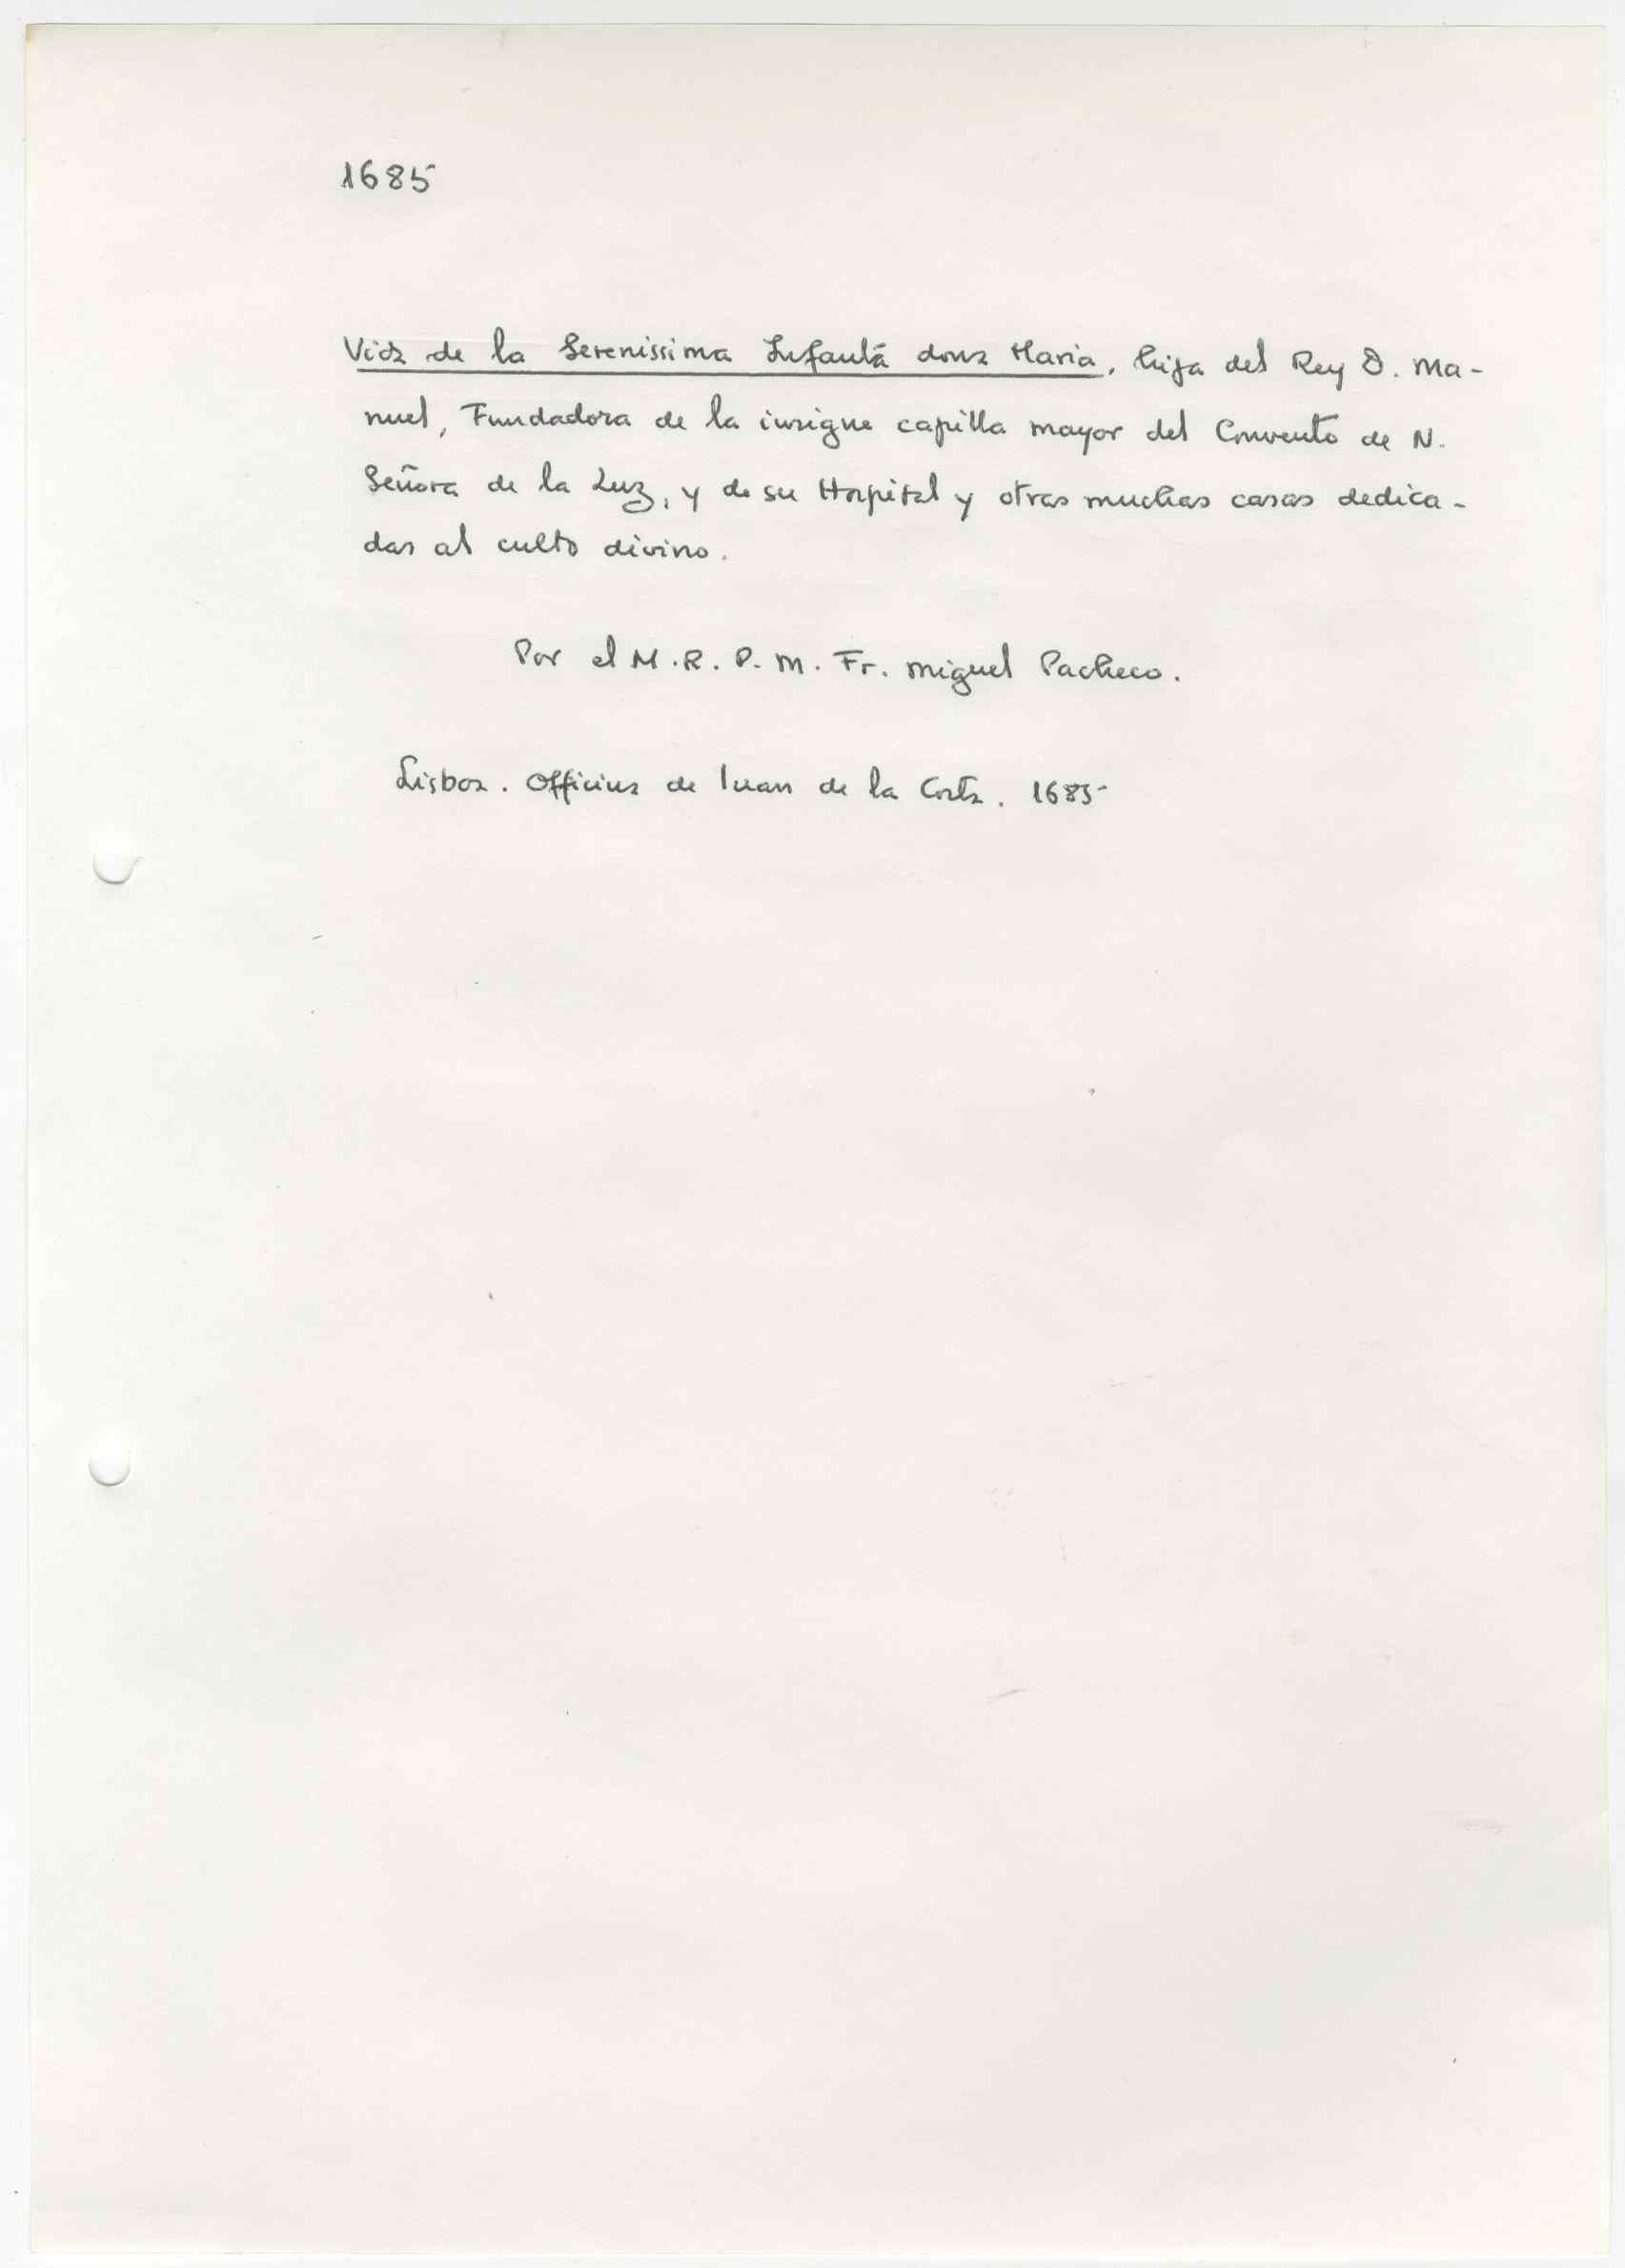 1685
Vida de la Serenissima Infanta dona Maria, hija del Rey D. Ma-
nuel, Fundadora de la insigne capilla mayor del Convento de N.
Señora de la Luz, y de su Hospital y otras muchas casas dedica-
das al culto divino.
Por el M. R. P. M. Fr. Miguel Pacheco.
Lisboa. Officina de Iuan de la Costa. 1685